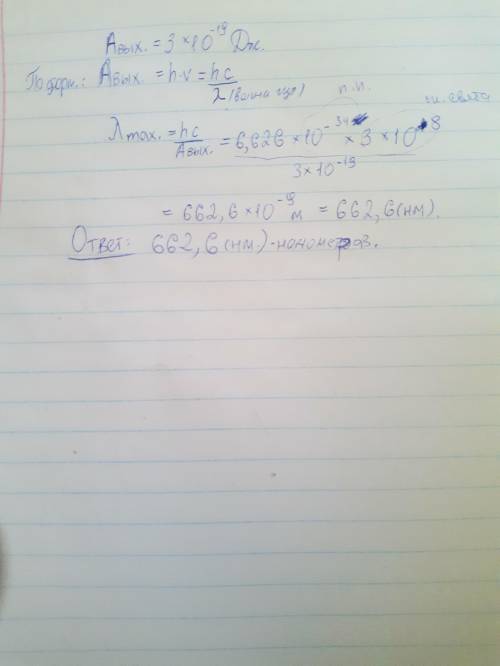 Aвых. = 3 × 10⁻¹⁹ Дж.
По форм.: Aвых. = h·ν = hc / λ
п.п. ск. света
λmax. = hc / Aвых. = 6,626 × 10⁻³⁴ × 3 × 10⁸ / 3 × 10⁻¹⁹
= 662,6 × 10⁻⁹ м = 662,6 (нм).
Ответ: 662,6 (нм) - нонометров.